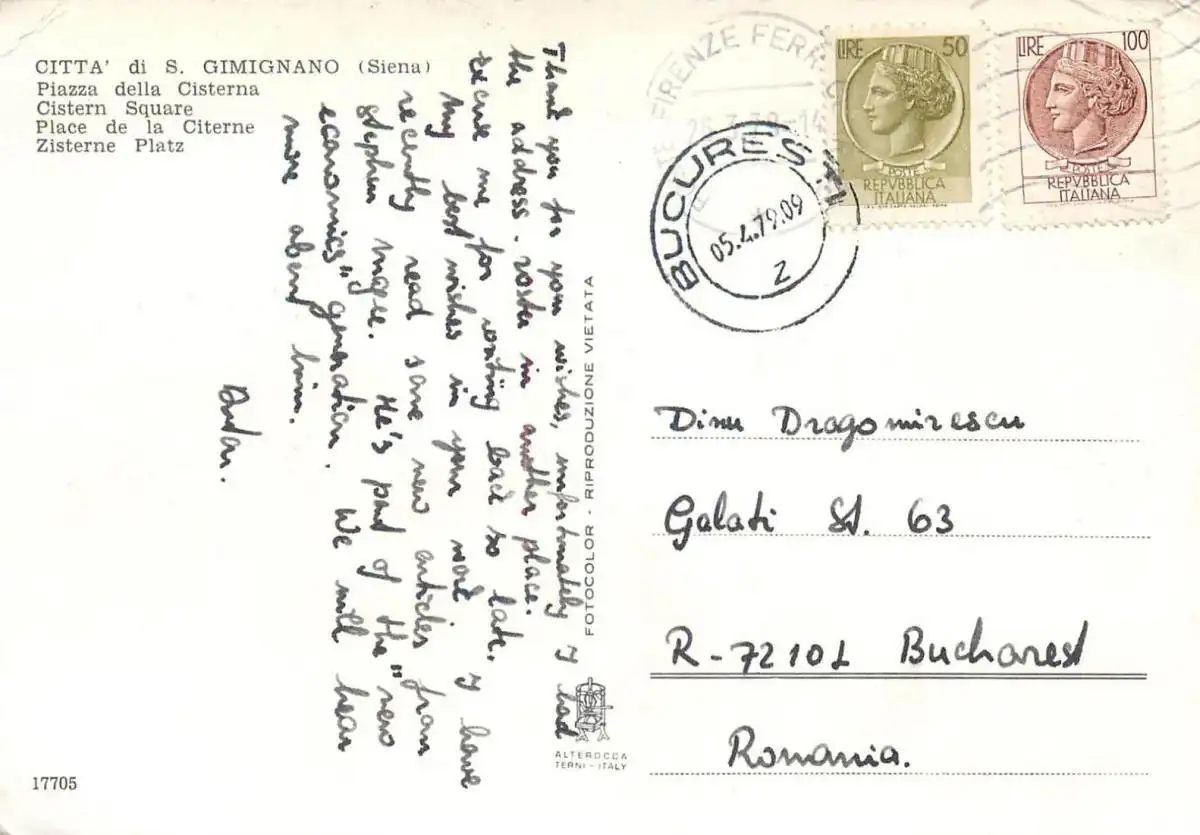 CITTA' di S. GIMIGNANO (Siena)
Piazza della Cisterna
Cistern Square
Place de la Citerne
Zisterne Platz
Thank you for your wishes, unfortunately I had
the address-roster in another place.
Excuse me for writing back so late.
My best wishes in your work. I have
recently read some new articles from
Stephen Magee. He's part of the "new
economics" generation. We will hear
more about him.
FOTOCOLOR - RIPRODUZIONE VIETATA
ALTEROCCA
TERNI - ITALY
17705
FIRENZE FERR
BUCUREŞTI
05.4.79.09
2
LIRE 50
POSTE
REPVBBLICA
ITALIANA
LIRE 100
POSTE
REPVBBLICA
ITALIANA
Dinu Dragomirescu
Galati St. 63
R-72101 Bucharest
Romania.